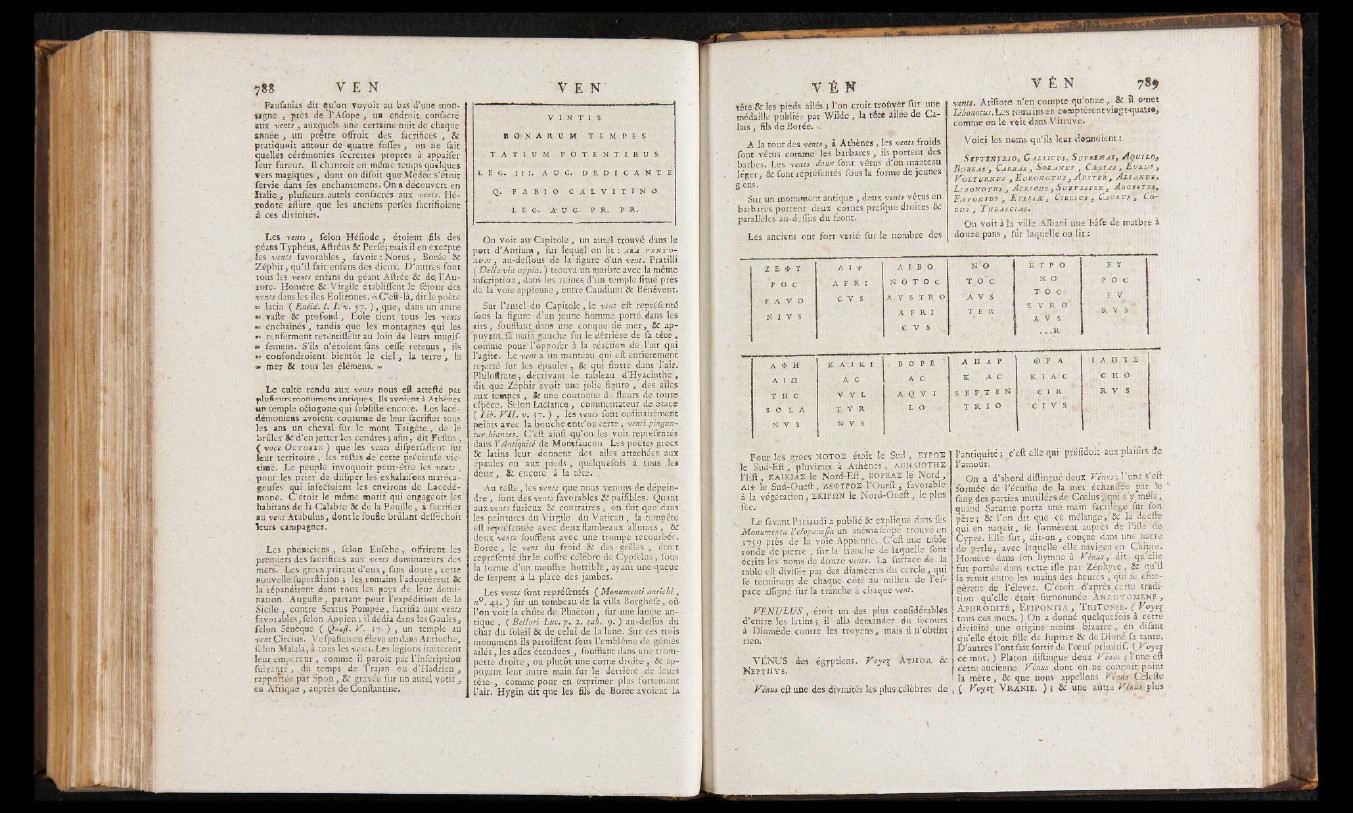 788 V E N
Paufanias dit qu'on voyoit au bas d'une mon-
tagne , près de l'Afope , un endroit confacré
aux vents , auxquels une certaine nuit de chaque
année , un prêtre offroit des facrifices , &
pratiquoit autour de quatre foffes , on ne fait
quelles cérémonies fecrettes propres à appaifer
leur fureur. Il chantoit en même temps quelques
vers magiques , dont on difoit que Médée s'étoit
fervie dans fes enchantemens. On a découvert en
Italie , plufieurs autels confacrés aux vents. Hé-
rodote affure que les anciens perfes facrifioient
à ces divinités.
Les vents , felon Héfiode , étoient fils des
géans Typhéus, Aftréus & Perfé; mais il en excepte
les vents favorables , favoir : Notus , Borée &
Zéphir , qu'il fait enfans des dieux. D'autres font
tous les vents enfans du géant Aftrée & de l'Au-
rore. Homère & Virgile établiffent le féjour des
vents dans les îles Eoliennes. « C'eft-là, dit le poëte
» latin ( Enéid. l. I. v. 57. ) , que, dans un antre
» vafte & profond , Eole tient tous les vents
» enchaînés , tandis que les montagnes qui les
» renferment retentiffent au loin de leurs mugif-
» femens. S'ils n'étoient fans ceffe retenus , ils
» confondroient bientôt le ciel , la terre , la
» mer & tous les élémens. »
Le culte rendu aux vents nous eft attefté par
plufieurs monumens antiques. Ils avoient à Athènes
un temple octogone qui fubfifte encore. Les lacé-
démoniens avoient coutume de leur facrifier tous
les ans un cheval fur le mont Taigète , de le
brûler & d'en jetter les cendres ; afin , dit Feftus ,
( voce OCTOBER ) que les vents difperfaffent fur
leur territoire , les reftes de cette précieufe vic-
time. Le peuple invoquoit peut-être les vents ,
pour les prier de diffiper les exhalaifons maréca-
geufes qui infectoient les environs de Lacédé-
mone. C'étoit le même motif qui engageoit les
habitans de la Calabre & de la Pouille , à facrifier
au vent Atabulus , dont le foufle brûlant defféchoit
leurs campagnes.
Les phéniciens , felon Eufèbe , offrirent les
premiers des facrifices aux vents dominateurs des
mers. Les grecs prirent d'eux , fans doute , cette
nouvelle fuperftition ; les romains l'adoptèrent &
la répandirent dans tous les pays de leur domi-
nation. Augufte , partant pour l'expédition de la
Sicile , contre Sextus Pompée , facrifia aux vents
favorables, felon Appien ; il dédia dans les Gaules,
felon Sénèque ( Quæft. V. 17. ) , un temple au
vent Circius. Vefpafien en éleva un dans Antioche,
felon Malala, à tous les vents. Les légions imitèrent
leur empereur , comme il paroît par l'infcription
fuivante , du temps de Trajan ou d'Hadrien ,
rapportée par Spon , & gravée fur un autel votif ,
en Afrique , auprès de Conftantine.
V E N
V I N T I S
B O N A R U M T E M P E S
T A T I U M P O T E N T I B U S
L E G. I I I. A U G. D E D I C A N T E
Q. F A B I O C A L V I T I N O
L E G. A U G. P R. P R.
On voit au Capitole , un autel trouvé dans le
port d'Antium , fur lequel on lit : ARA VENTO-
RUM , au-deffous de la figure d'un vent. Pratilli
( Della via appia. ) trouva un marbre avec la même
infcription , dans les ruines d'un temple fitué près
de la voie appienne , entre Caudium & Bénévent.
Sur l'autel du Capitole , le vent eft repréfenté
fous la figure d'un jeune homme porté dans les
airs , foufflant dans une conque de mer , & ap-
puyant fa main gauche fur le derrière de fa tête ,
comme pour l'oppofer à la réaction de l'air qui
l'agite. Le vent a un manteau qui eft entièrement
rejetté fur les épaules , & qui flotte dans l'air.
Philoftrate , décrivant le tableau d'Hyacinthe ,
dit que Zéphir avoit une jolie figure , des ailes
aux tempes , & une couronne de fleurs de toute
efpèce. Selon Lactance , commentateur de Stace
( Lib. VII. v. 37. ) , les vents font ordinairement
peints avec la bouche entr'ouverte , venti pingun-
tur hiantes. C'eft ainfi qu'on les voit repréfentés
dans l'Antiquité de Montfaucon. Les poëtes grecs
& latins leur donnent des ailes attachées aux
épaules ou aux pieds , quelquefois à tous les
deux , & encore à la tête.
Au refte , les vents que nous venons de dépein-
dre , font des vents favorables & paifibles. Quant
aux vents furieux & contraires , on fait que dans
les peintures du Virgile du Vatican , la tempête
eft repréfentée avec deux flambeaux allumés , &
deux vents foufflent avec une trompe recourbée.
Borée , le vent du froid & des grêles , étoit
repréfenté fur le coffre célèbre de Cypfelus , fous
la forme d'un monftre horrible , ayant une queue
de ferpent à la place des jambes.
Les vents font repréfentés ( Monumenti antichi ,
n°. 43. ) fur un tombeau de la villa Borghèfe , où
l'on voit la chûte de Phaéton , fur une lampe an-
tique , ( Bellori Luc. p. 2. tab. 9. ) au-deffus du
char du foleil & de celui de la lune. Sur ces trois
monumens ils paroiffent fous l'emblême de génies
ailés , les ailes étendues , foufflant dans une trom-
pette droite , ou plutôt une corne droite , & ap-
puyant leur autre main fur le derrière de leurs
tête , comme pour en exprimer plus fortement
l'air. Hygin dit que les fils de Borée avoient la
V E N
tête & les pieds ailés ; l'on croit trouver fur une
médaille publiée par Wilde , la tête ailée de Ca-
lais , fils de Borée.
A la tour des vents , à Athènes , les vents froids
font vêtus comme les barbares , ils portent des
barbes. Les vents doux font vêtus d'un manteau
léger , & font repréfentés fous la forme de jeunes
gens.
Sur un monument antique , deux vents vêtus en
barbares portent deux cornes prefque droites &
parallèles au-deffus du front.
Les anciens ont fort varié fur le nombre des
V E N 789
vents. Ariftote n'en compte qu'onze , & il omet
Libonotus. Les romains en comptèrent vingt-quatre,
comme on le voit dans Vitruve.
Voici les noms qu'ils leur donnoient :
SEPTENTRIO, GALLICUS, SUPERNAS, AQUILO,
BOREAS , CARBAS , SOLANUS , CÆSIAS , EURUS ,
VOLTURNUS , EURONOTUS, AUSTER , ALTANUS,
LIBONOTUS , AFRICUS , SUBVESPER , ARGESTES,
FAVONIUS , ETESIÆ , CIRCIUS , CAURUS , CO-
RUS , THRASCIAS.
On voit à la ville Albani une bâfe de marbre à
douze pans , fur laquelle on lit :
Z E Φ Y
P O C
F A V O
N I V S
A I Ψ
A F R I
C V S
A I B O
N O T O C
A V S T R O
A F R I
C V S
N O
T O C
A V S
T E R
E Y P O
N O
T O C
E V R O
A V S
...R
E Y
P O C
E V
R V S
A Φ H
A I Ω
T H C
S O L A
N V S
K A I K I
A C
V V L
T V R
N V S
B O P E
A C
A Q V I
L O
A Π A P
K A C
S E P T E N
T R I O
Θ P A
K I A C
C I R
C I V S
I A Π Y Σ
C H O
R V S
Pour les grecs ΝΟΤΟΣ étoit le Sud , ΕΥΡΟΣ
le Sud-Eft , pluvieux à Athènes , ΑΠΗΛΙΩΤΗΣ
l'Eft , ΚΑΙΚΙΑΣ le Nord-Eft, ΒΟΡΕΑΣ le Nord ,
ΛΙΨ le Sud-Oueft , ΖΕΦΥΡΟΣ l'Oueft , favorable
à la végétation , ΣΚΙΡΩΝ le Nord-Oueft , le plus
fec.
Le favant Paciaudi a publié & expliqué dans fes
Monumenta Peloponefia un anémofcope trouvé en
1759 près de la voie Appienne. C'eft une table
ronde de pierre , fur la tranche de laquelle font
écrits les noms de douze vents. La furface de la
table eft divifée par des diamètres du cercle, qui
fe terminent de chaque côté au milieu de l'ef-
pace affigné fur la tranche à chaque vent.
VENULUS , étoit un des plus confidérables
d'entre les latins ; il alla demander du fecours
à Diomède contre les troyens , mais il n'obtint
rien.
VÉNUS des égyptiens. Voyez ATHOR &
NEPTHYS.
Vénus eft une des divinités les plus célèbres de
l'antiquité ; c'eft elle qui préfidoit aux plaifirs de
l'amour.
On a d'abord diftingué deux Vénus ; l'une s'eft
formée de l'écume de la mer échauffée par le
fang des parties mutilées de Cœlus , qui s'y mêla ,
quand Saturne porta une main facrilège fur fon
père ; & l'on dit que ce mélange , & la déeffe
qui en naquit , fe formèrent auprès de l'ifle de
Cypre. Elle fut , dit-on , conçue dans une nacre
de perle , avec laquelle elle navigea en Chipre.
Homère dans fon hymne à Vénus , dit qu'elle
fut portée dans cette ifle par Zéphyre , & qu'il
la remit entre les mains des heures , qui fe char-
gèrent de l'élever. C'étoit d'après cette tradi-
tion qu'elle étoit furnommée ANADYOMENE ,
APHRODITE , EPIPONTIA , TRITONIE. ( Voyez
tous ces mots. ) On a donné quelquefois à cette
divinité une origine moins bizarre , en difant
qu'elle étoit fille de Jupiter & de Dioné fa tante.
D'autres l'ont fait fortir de l'œuf primitif. ( Voyez
ce mot. ) Platon diftingue deux Vénus ; l'une eft
cette ancienne Vénus dont on ne connoît point
la mère , & que nous appellons Vénus Célefte
( Voyez VRANIE. ) ; & une autre Vénus plus